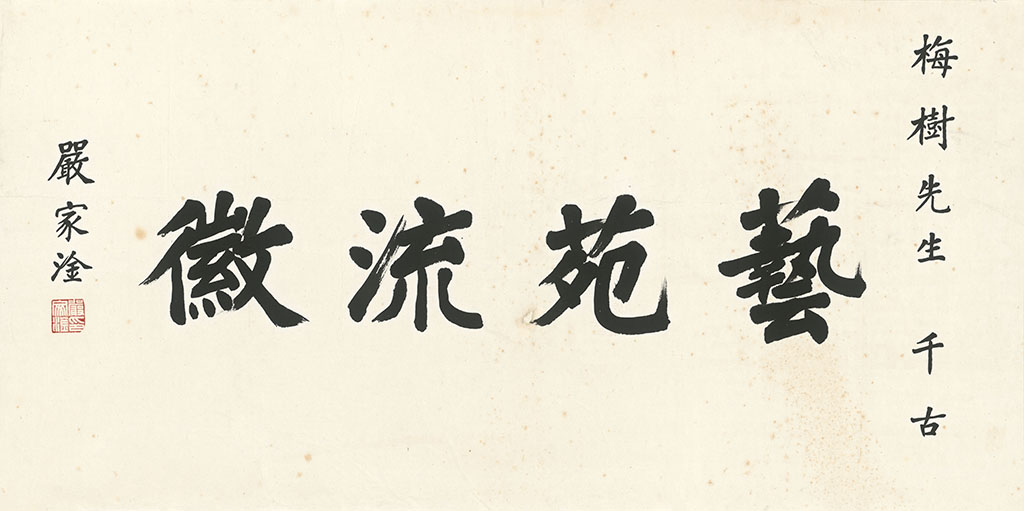 梅樹先生 千古
藝苑流徽
嚴家淦